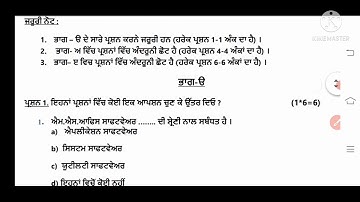 ਜ਼ਰੂਰੀ ਨੋਟ :
1. ਭਾਗ – ੳ ਦੇ ਸਾਰੇ ਪ੍ਰਸ਼ਨ ਕਰਨੇ ਜ਼ਰੂਰੀ ਹਨ (ਹਰੇਕ ਪ੍ਰਸ਼ਨ 1-1 ਅੰਕ ਦਾ ਹੈ) ।
2. ਭਾਗ- ਅ ਵਿੱਚ ਪ੍ਰਸ਼ਨਾਂ ਵਿੱਚ ਅੰਦਰੂਨੀ ਛੋਟ ਹੈ (ਹਰੇਕ ਪ੍ਰਸ਼ਨ 4-4 ਅੰਕਾਂ ਦਾ ਹੈ) ।
3. ਭਾਗ– ੲ ਵਿਚ ਪ੍ਰਸ਼ਨਾਂ ਵਿੱਚ ਅੰਦਰੂਨੀ ਛੋਟ ਹੈ (ਹਰੇਕ ਪ੍ਰਸ਼ਨ 6-6 ਅੰਕਾਂ ਦਾ ਹੈ) ।
ਭਾਗ-ੳ
ਪ੍ਰਸ਼ਨ 1. ਇਹਨਾਂ ਪ੍ਰਸ਼ਨਾਂ ਵਿੱਚੋਂ ਕੋਈ ਇਕ ਆਪਸ਼ਨ ਚੁਣ ਕੇ ਉੱਤਰ ਦਿਓ ? (1*6=6)
1. ਐਮ.ਐਸ.ਆਫਿਸ ਸਾਫਟਵੇਅਰ ........ ਦੀ ਸ਼੍ਰੇਣੀ ਨਾਲ ਸਬੰਧਤ ਹੈ ।
a) ਐਪਲੀਕੇਸ਼ਨ ਸਾਫਟਵੇਅਰ
b) ਸਿਸਟਮ ਸਾਫਟਵੇਅਰ
c) ਯੂਟੀਲਟੀ ਸਾਫਟਵੇਅਰ
d) ਇਹਨਾਂ ਵਿਚੋਂ ਕੋਈ ਨਹੀਂ